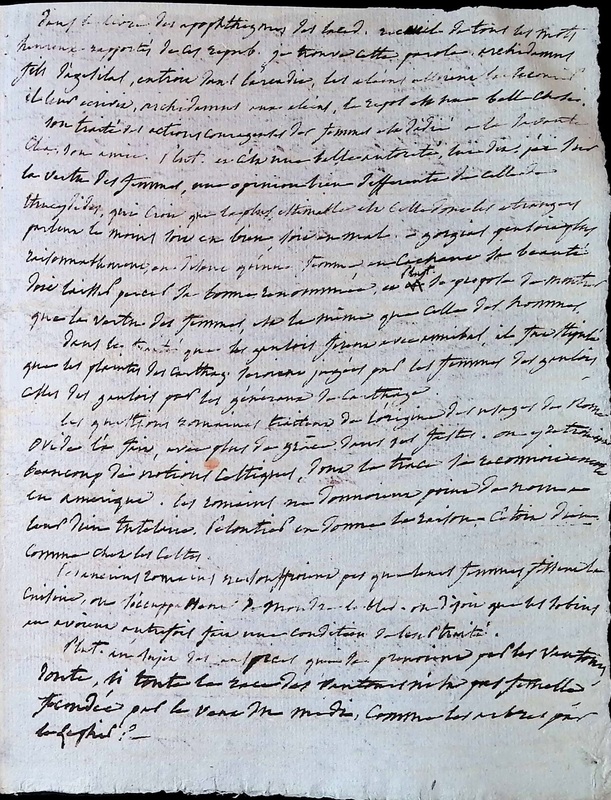 dans le livre des apophthegmes des laced. recueil de tous les mots
heureux rapportés de ces repub. je trouve cette parole. archidamus
fils d'agesilas, entroit dans l'arcadie, les eliens alloient la secourir
il leur écrivit, archidamus aux eliens, le repos est une belle chose.
son traité des actions courageuses des femmes est dédié a la savante
Clea, son amie. Plut. est une belle autorité, lui dis, j'ai sur
la vertu des femmes, une opinion bien differente de celle de
thucydides, qui croit que la plus estimable est celle dont les etrangers
parlent le moins soit en bien soit en mal. gorgias pensoit plus
raisonnablement, en disant qu'une femme en cachant sa beauté
doit laisser percer sa bonne renommée, et Plut. se propose de montrer
que la vertu des femmes, est la même que celle des hommes.
dans le traité que les gaulois firent avec annibal, il fut stipulé
que les plaintes des carthag. seroient jugées par les femmes des gaulois
celles des gaulois par les généraux de Carthage
les questions romaines traitent de l'origine des usages de Rome
Ovide l'a fait, avec plus de grâce dans ses fastes. on y retrouve
beaucoup de notions celtiques, dont la trace se reconnoit encore
en amerique. les romains ne donnoient point de nom a
leur dieu tutelaire. Pelontres en donne la raison c'étoit
comme chez les Celtes.
les anciens romains ne souffroient pas que leurs femmes fissent la
cuisine, ou s'occuppassent de moudre le bled. on disoit que les sabins
en avoient autrefois fait une condition de leur traité.
Plut. au sujet des auspices que se prenoient par les vautours
doute, si toute la race des vautours n'est pas femelle
fécondée par le vent du midi, comme les arbres par
le Zephir?